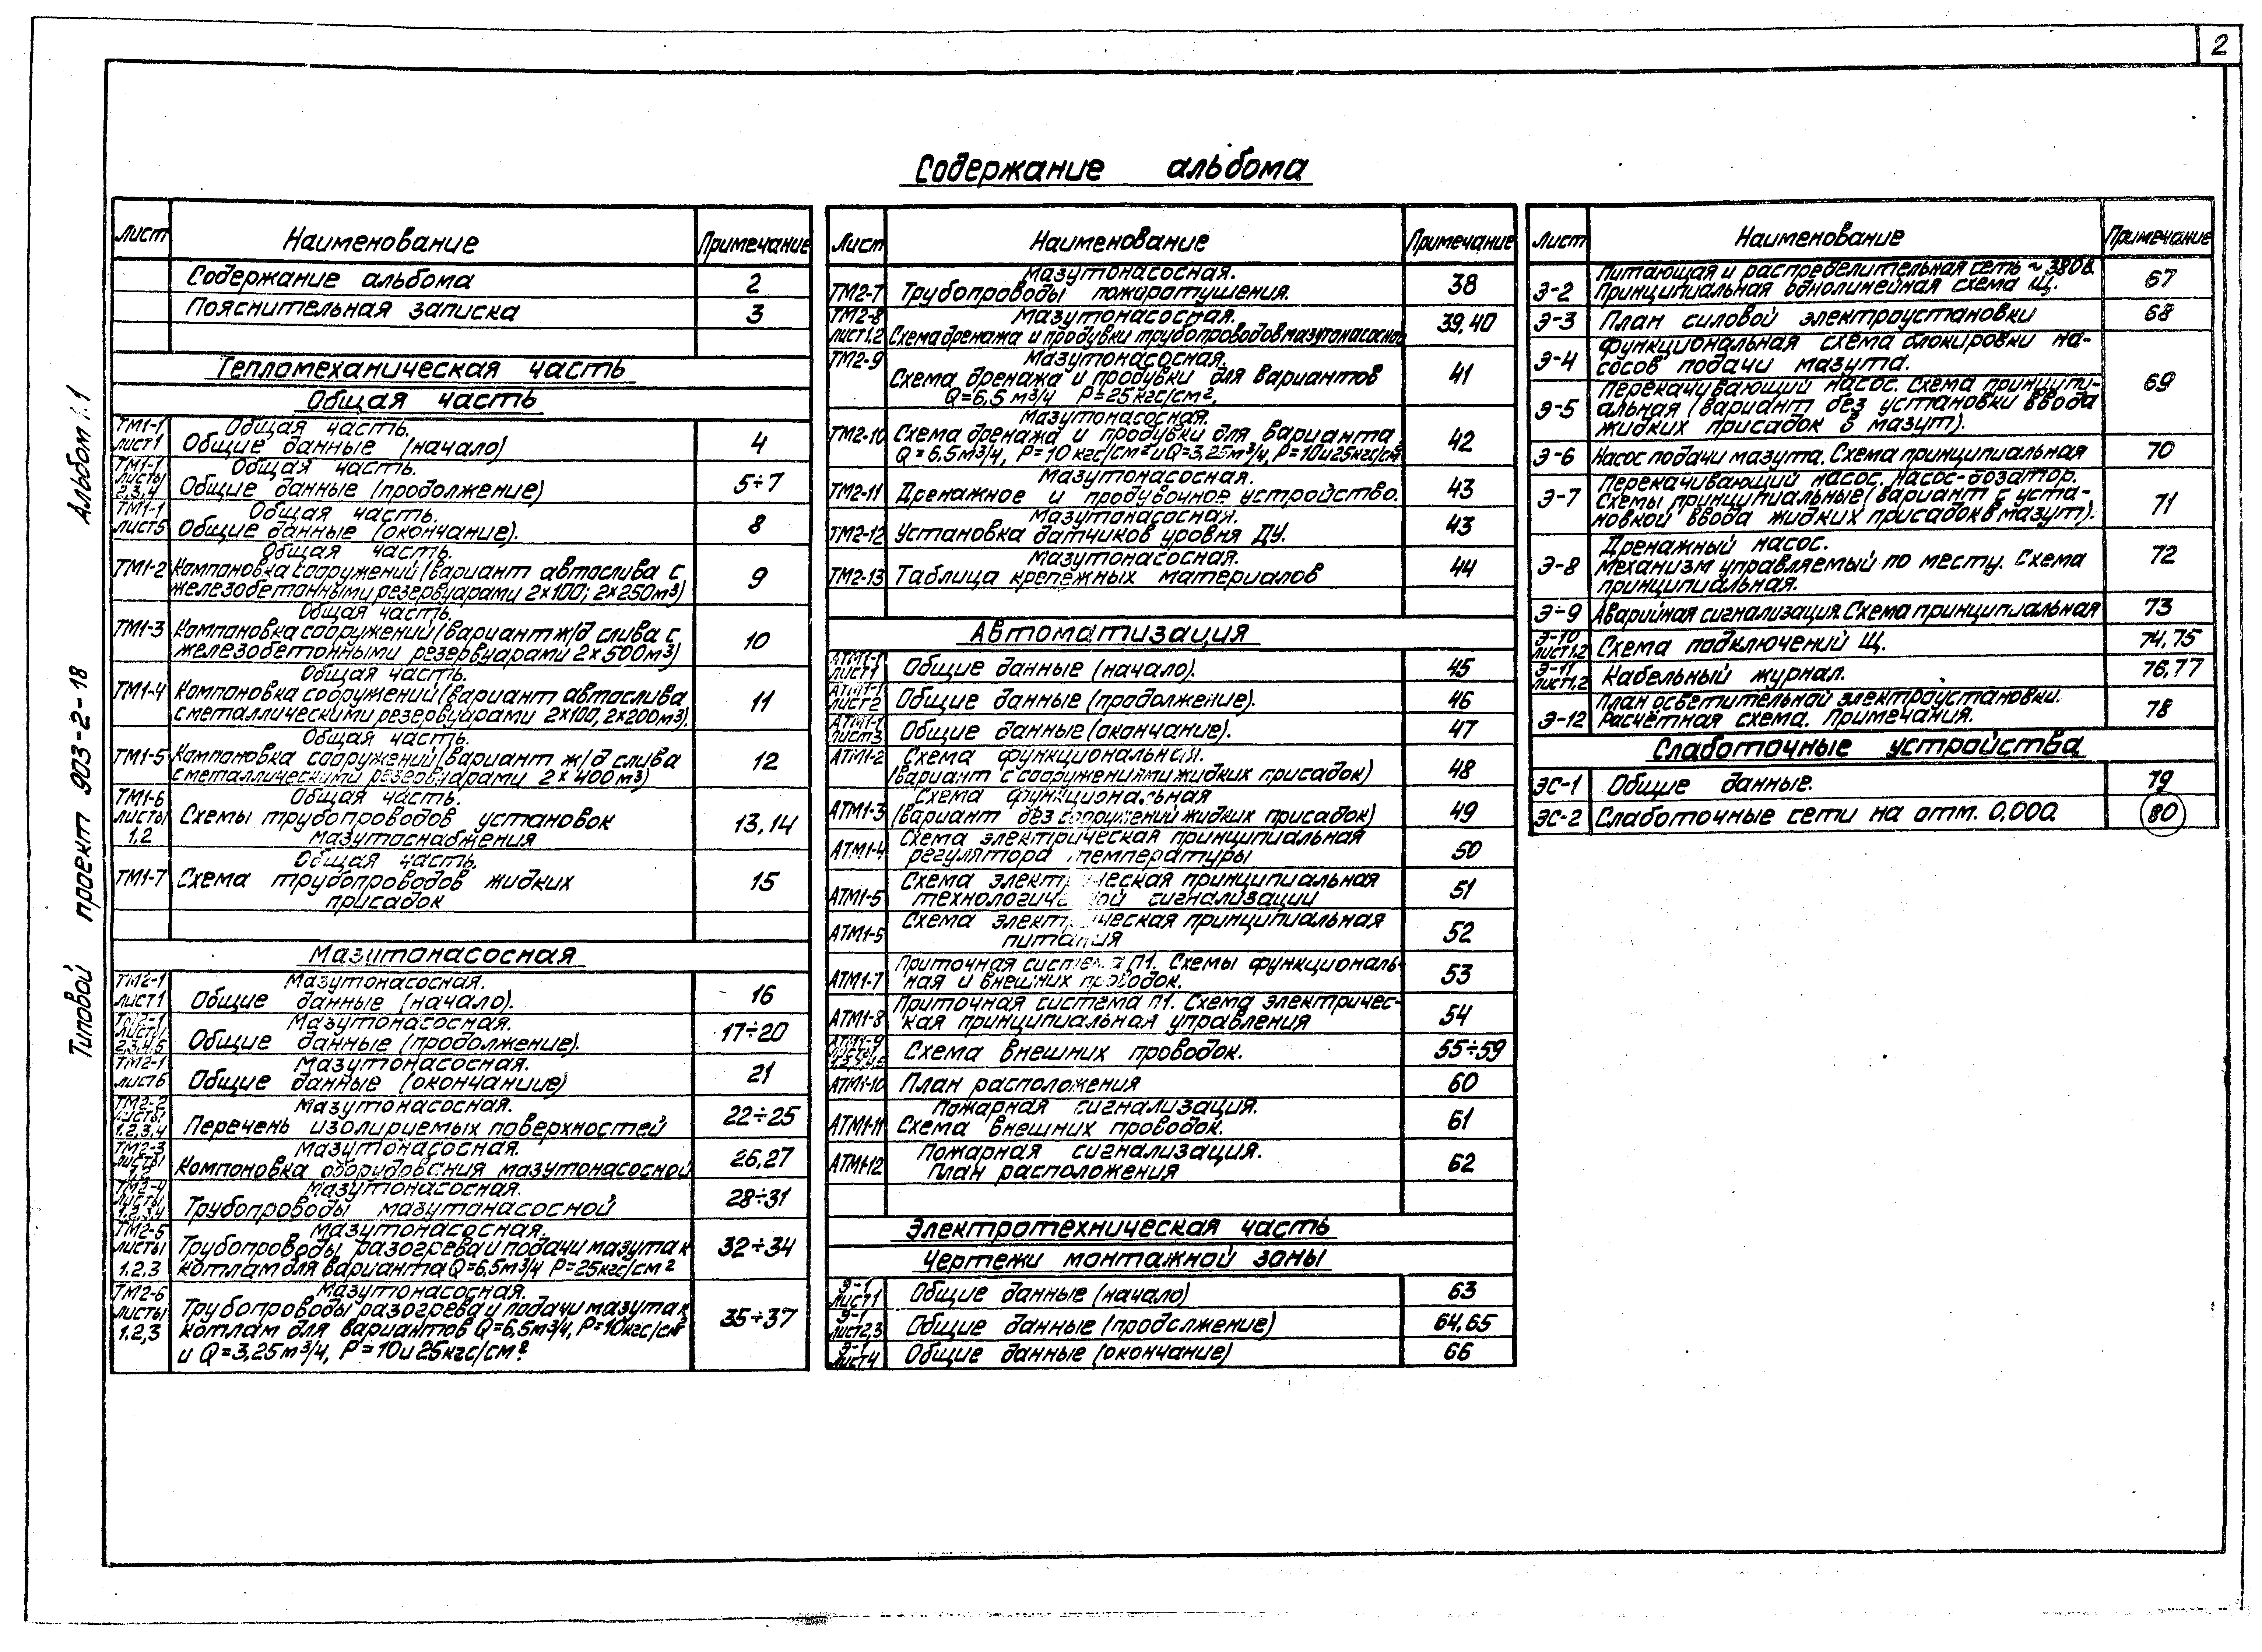 2
Содержание альбома
Типовой проект 903-2-18 Альбом I.1
Лист Наименование Примечание
Содержание альбома 2
Пояснительная записка 3
Тепломеханическая часть
Общая часть
ТМ1-1 Общая часть.
лист1 Общие данные (начало) 4
ТМ1-1 Общая часть.
листы 2,3,4 Общие данные (продолжение) 5÷7
ТМ1-1 Общая часть.
лист5 Общие данные (окончание). 8
Общая часть.
ТМ1-2 Компановка сооружений (вариант автослива с 9
железобетонными резервуарами 2×100; 2×250м³)
Общая часть.
ТМ1-3 Компановка сооружений (вариант ж/д слива с 10
железобетонными резервуарами 2×500м³)
Общая часть.
ТМ1-4 Компановка сооружений (вариант автослива 11
с металлическими резервуарами 2×100, 2×200м³).
Общая часть.
ТМ1-5 Компановка сооружений (вариант ж/д слива 12
с металлическими резервуарами 2×400м³)
ТМ1-6 Общая часть.
листы Схемы трубопроводов установок 13,14
1,2 мазутоснабжения
Общая часть.
ТМ1-7 Схема трубопроводов жидких 15
присадок
Мазутонасосная
ТМ2-1 Мазутонасосная.
лист1 Общие данные (начало). 16
ТМ2-1 Мазутонасосная.
листы 2,3,4,5 Общие данные (продолжение). 17÷20
ТМ2-1 Мазутонасосная.
лист6 Общие данные (окончание) 21
ТМ2-2 Мазутонасосная.
листы 1,2,3,4 Перечень изолируемых поверхностей 22÷25
ТМ2-3 Мазутонасосная.
листы 1,2 Компоновка оборудования мазутонасосной 26,27
ТМ2-4 Мазутонасосная.
листы 1,2,3,4 Трубопроводы мазутонасосной 28÷31
ТМ2-5 Мазутонасосная.
листы Трубопроводы разогрева и подачи мазута к 32÷34
1.2.3 котлам для варианта Q=6,5м³/ч P=25кгс/см²
ТМ2-6 Мазутонасосная.
листы Трубопроводы разогрева и подачи мазута к
1.2,3 котлам для вариантов Q=6,5м³/ч, P=10кгс/см² 35÷37
и Q=3,25м³/ч, P=10 и 25кгс/см².
Лист Наименование Примечание
Мазутонасосная.
ТМ2-7 Трубопроводы пожаротушения. 38
ТМ2-8 Мазутонасосная.
лист1,2 Схема дренажа и продувки трубопроводов мазутонасосной 39,40
ТМ2-9 Мазутонасосная.
Схема дренажа и продувки для вариантов 41
Q=6,5 м³/ч P=25кгс/см².
Мазутонасосная.
ТМ2-10 Схема дренажа и продувки для варианта 42
Q=6.5м³/ч, P=10 кгс/см² и Q=3,25м³/ч, P=10 и 25кгс/см²
Мазутонасосная.
ТМ2-11 Дренажное и продувочное устройство. 43
Мазутонасосная.
ТМ2-12 Установка датчиков уровня ДУ. 43
Мазутонасосная.
ТМ2-13 Таблица крепежных материалов 44
Автоматизация
АТМ1-1 лист1 Общие данные (начало). 45
АТМ1-1 лист2 Общие данные (продолжение). 46
АТМ1-1 лист3 Общие данные (окончание). 47
АТМ1-2 Схема функциональная.
(вариант с сооружениями жидких присадок) 48
Схема функциональная
АТМ1-3 (вариант без сооружений жидких присадок) 49
Схема электрическая принципиальная
АТМ1-4 регулятора температуры 50
Схема электрическая принципиальная
АТМ1-5 технологической сигнализации 51
Схема электрическая принципиальная
АТМ1-5 питания 52
Приточная система П1. Схемы функциональ-
АТМ1-7 ная и внешних проводок. 53
Приточная система П1. Схема электричес-
АТМ1-8 кая принципиальная управления 54
АТМ1-9 листы 1,2,3,4,5 Схема внешних проводок. 55÷59
АТМ1-10 План расположения 60
Пожарная сигнализация.
АТМ1-11 Схема внешних проводок. 61
Пожарная сигнализация.
АТМ1-12 План расположения 62
Электротехническая часть
Чертежи монтажной зоны
Э-1 лист1 Общие данные (начало) 63
Э-1 лист2,3 Общие данные (продолжение) 64,65
Э-1 лист4 Общие данные (окончание) 66
Лист Наименование Примечание
Питающая и распределительная сеть ~ 380в.
Э-2 Принципиальная однолинейная схема Щ. 67
Э-3 План силовой электроустановки 68
Функциональная схема блокировки на-
Э-4 сосов подачи мазута.
Перекачивающий насос. Схема принципи- 69
Э-5 альная (вариант без установки ввода
жидких присадок в мазут).
Э-6 Насос подачи мазута. Схема принципиальная 70
Перекачивающий насос. Насос-дозатор.
Э-7 Схемы принципиальные (вариант с уста- 71
новкой ввода жидких присадок в мазут).
Дренажный насос.
Э-8 Механизм управляемый по месту. Схема 72
принципиальная.
Э-9 Аварийная сигнализация. Схема принципиальная 73
Э-10 лист1,2 Схема подключений Щ. 74,75
Э-11 лист1,2 Кабельный журнал. 76,77
План осветительной электроустановки.
Э-12 Расчётная схема. Примечания. 78
Слаботочные устройства
ЭС-1 Общие данные. 79
ЭС-2 Слаботочные сети на отм. 0,000. 80